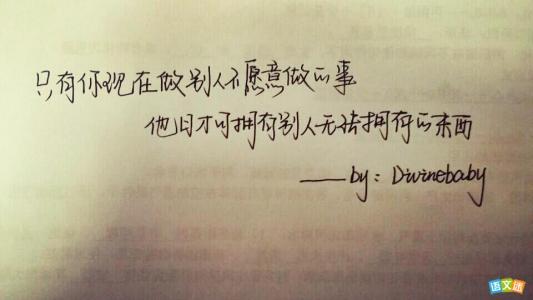 只有你现在做别人不愿意做的事
他日才可拥有别人无法拥有的东西
——by: Divinebaby
语文迷